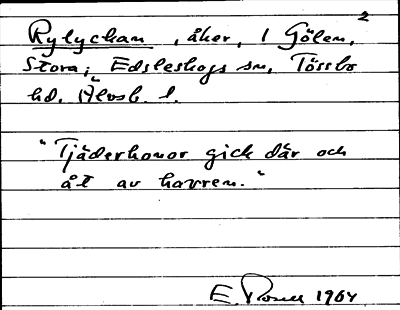 2
Rylyckan, åker, 1 Gölen,
Stora; Edsleskogs sn, Tössbo
hd. Älvsb. l.
"Tjäderhonor gick där och
åt av havren."
E. 1964